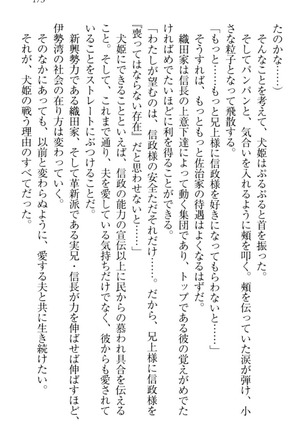 175
たのかな……）
そんなことを考えて、犬姫はぶるぶると首を振った。
そしてパンパンと、気合いを入れるように頬を叩く。頬を伝っていた涙が弾け、小
さな粒子となって飛散する。
「もっと……もっと兄上様に信政様を好きになってもらわないと……」
そうすれば、もっともっと佐治家の待遇はよくなるはずだ。
織田家は信長の上意下達によって動く集団であり、トップである彼の覚えがめでた
ければめでたいほどに利を得ることができる。
「わたしが望むのは、信政様の安全ただそれだけ……。だから、兄上様に信政様が
『喪ってはならない存在』だと思わせないと……」
犬姫にできることといえば、信政の能力の宣伝以上に民からの慕われ具合を伝える
こと。そして、これまで通り、夫を愛している気持ちだけでなく、彼からも愛されて
いることをストレートにぶつけることだ。
新興勢力である織田家、そして革新派である実兄・信長が力を伸ばせば伸ばすほど、
伊勢湾の社会の在り方は変わっていく。
そのなかにあっても、以前と変わらぬように、愛する夫と共に生き続けたい。
それが、犬姫の戦う理由のすべてだった。